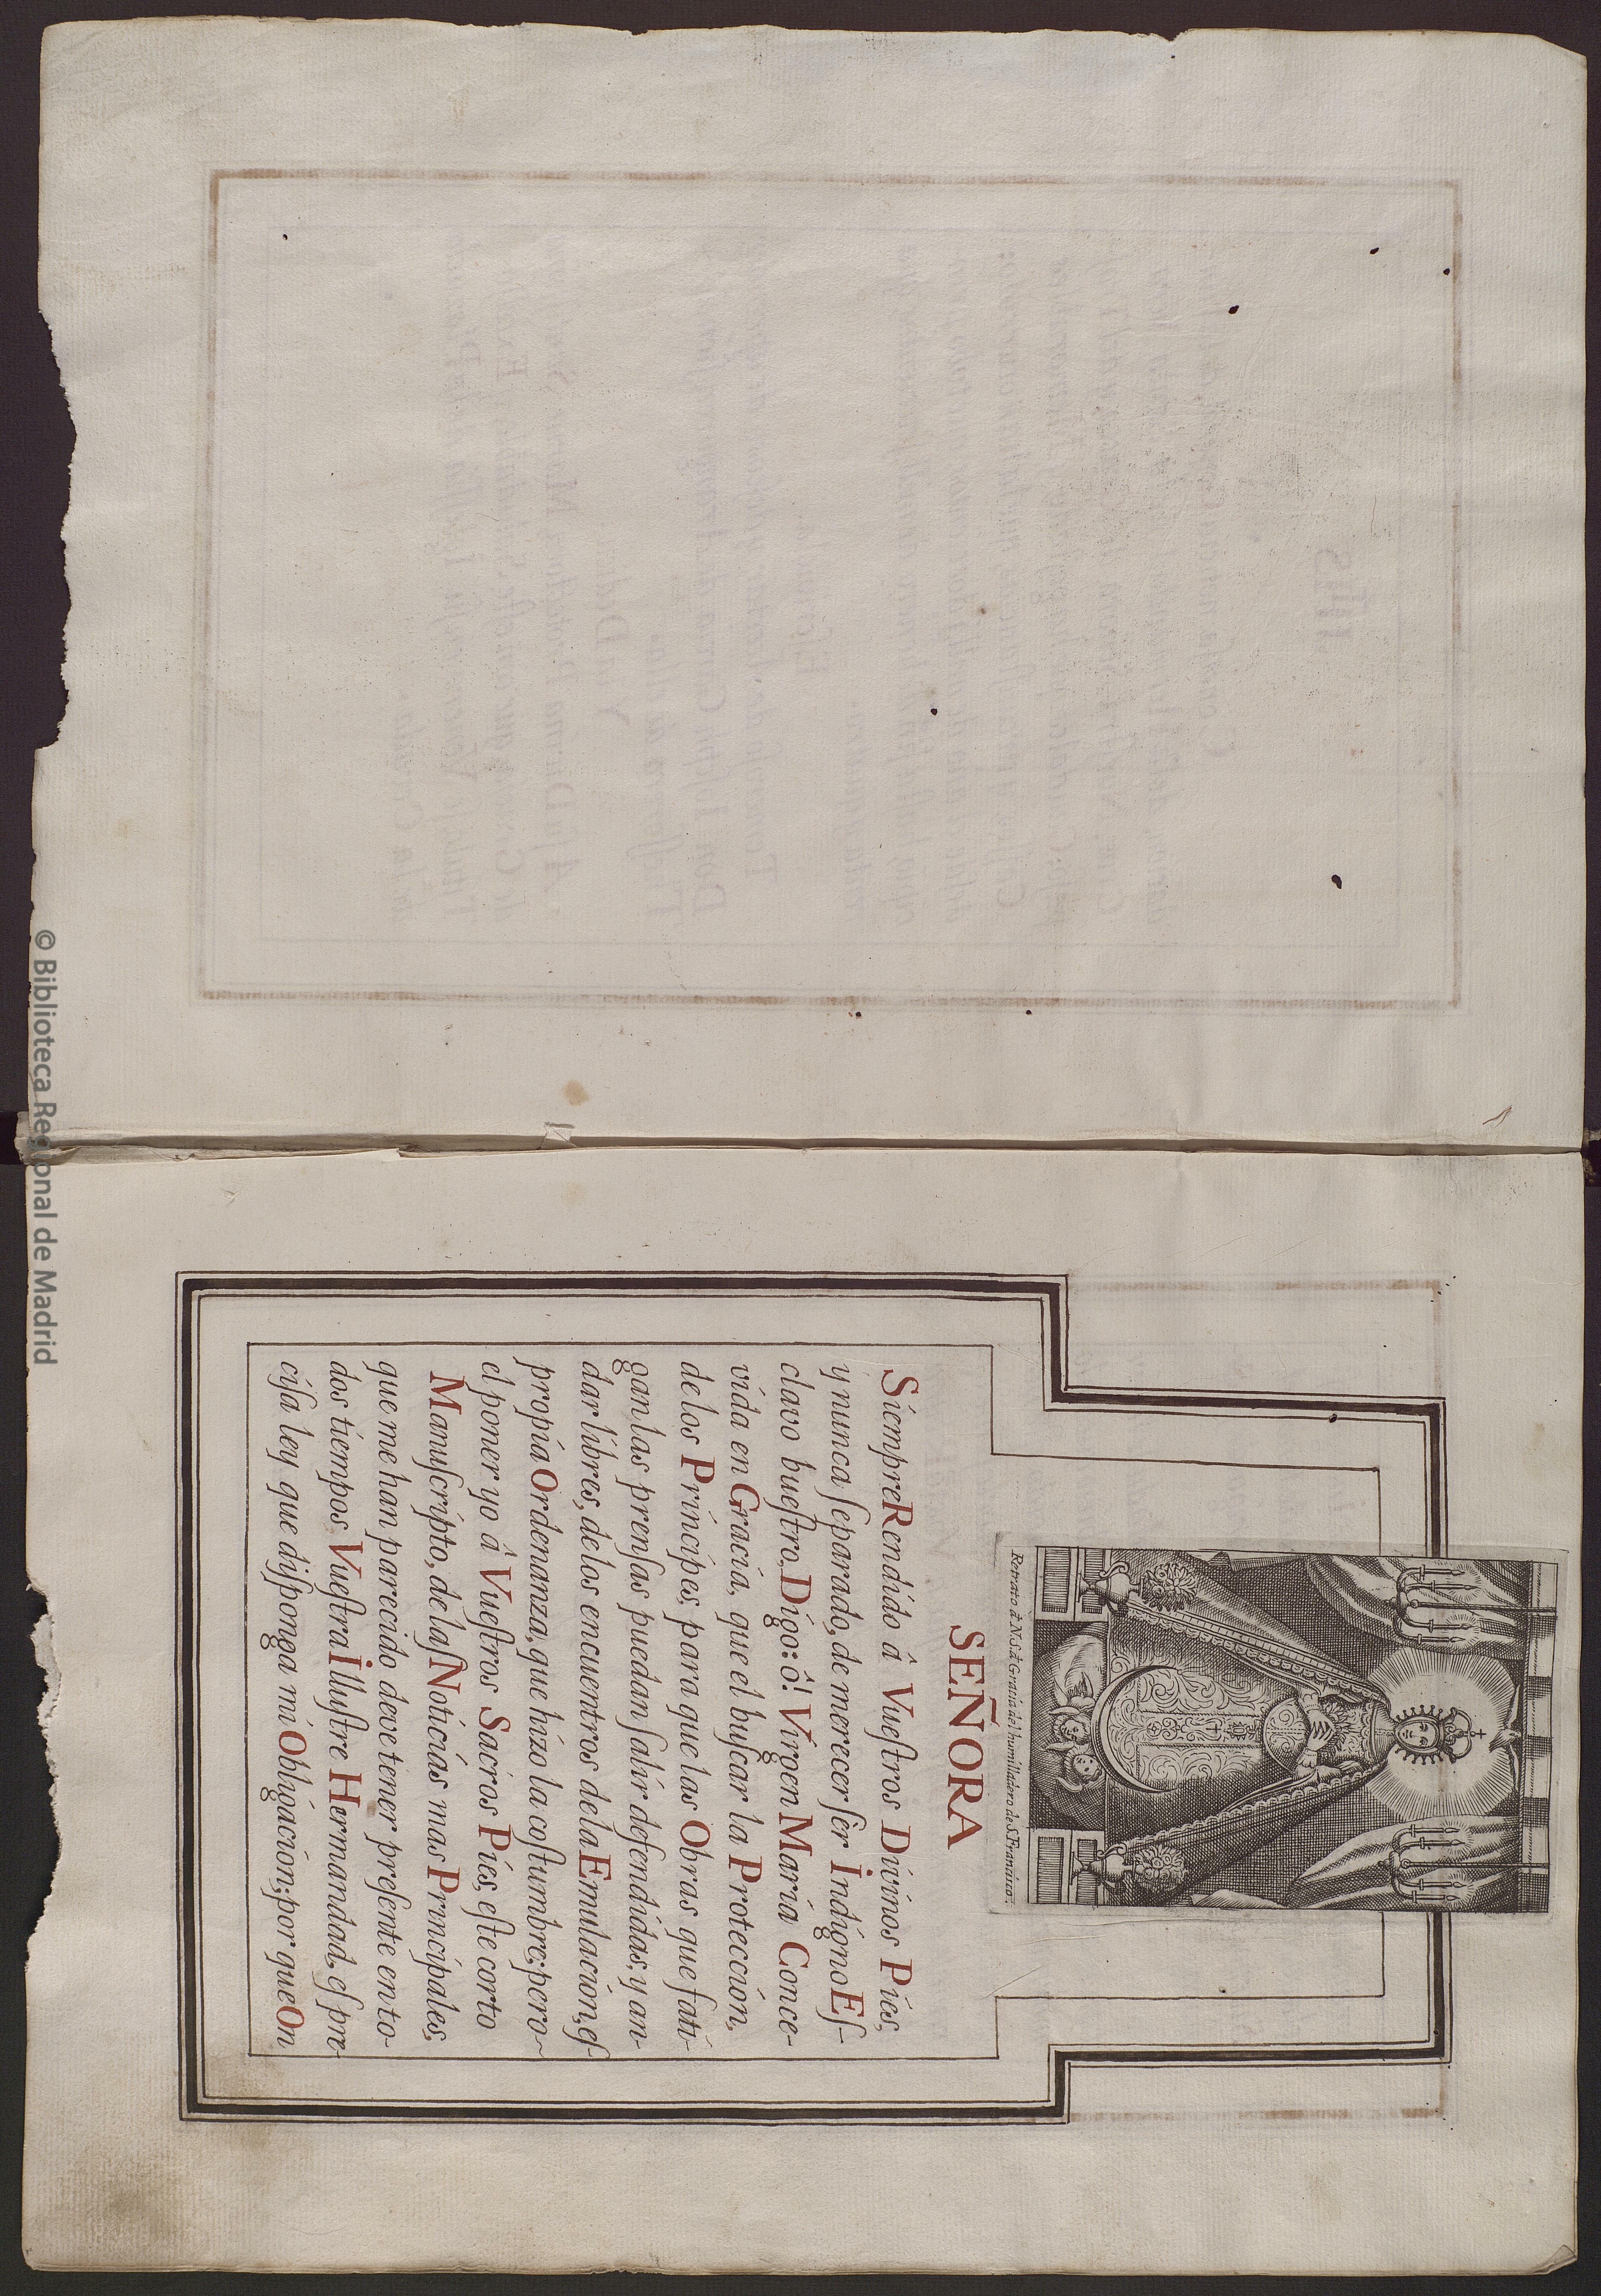 Retrato d̃ N. S. d̃ Gracia del humilladero de S. Francisco.
SEÑORA
Siempre Rendido â Vueſtros Divinos Pies,
y nunca ſeparado, de merecer ſer Indigno Eſ-
clavo bueſtro, Digo: ô! Virgen Maria Conce-
vida en Gracia, que el buſcar la Proteccion,
de los Principes, para que las Obras que fati-
gan las prenſas puedan ſalir defendidas, y an-
dar libres, de los encuentros de la Emulacion, eſ-
propia Ordenanza, que hizo la coſtumbre; pero
el poner yo á Vueſtros Sacros Pies, eſte corto
Manuſcripto, de laſ Noticias mas Principales,
que me han parecido deve tener preſente en to-
dos tiempos Vueſtra Illuſtre Hermandad, eſ pre-
ciſa ley que diſponga mi Obligacion; por que On
© Biblioteca Regional de Madrid